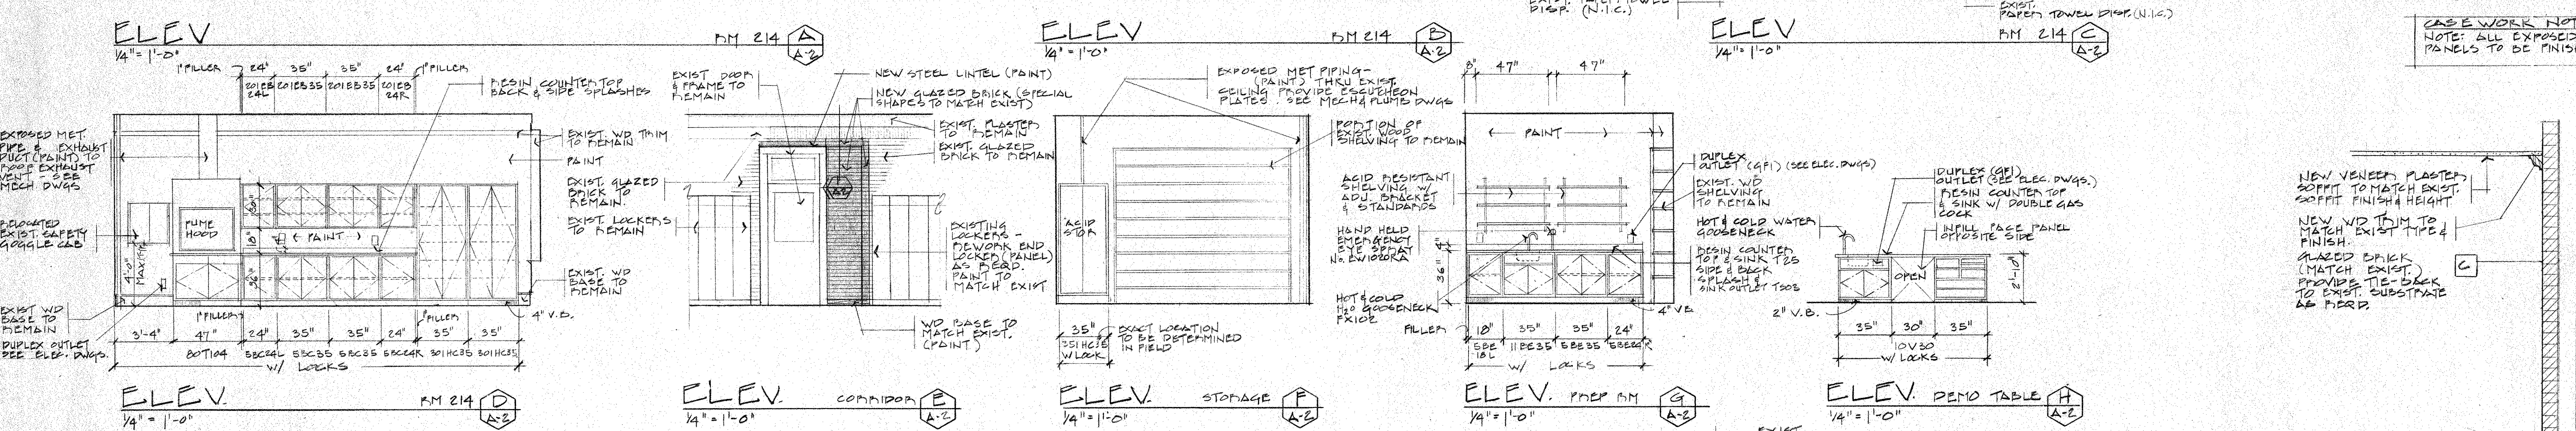 DISP. (N.I.C.)
EXIST.
PAPER TOWEL DISP. (N.I.C.)
ELEV
1/4" = 1'-0"
RM 214
A
A-2
ELEV
1/4" = 1'-0"
RM 214
B
A-2
ELEV
1/4" = 1'-0"
RM 214
C
A-2
CASEWORK NOT
NOTE: ALL EXPOSED
PANELS TO BE FINIS
1" FILLER
24"
35"
35"
24"
1" FILLER
201EB
24L
201EB35
201EB35
201EB
24R
RESIN COUNTERTOP
BACK & SIDE SPLASHES
EXPOSED MET.
PIPE & EXHAUST
DUCT (PAINT) TO
ROOF EXHAUST
VENT - SEE
MECH DWGS
RELOCATED
EXIST. SAFETY
GOGGLE CAB
EXIST WD
BASE TO
REMAIN
DUPLEX OUTLET
SEE ELEC. DWGS.
FUME
HOOD
PAINT
18"
36"
4'-0"
EXIST. WD TRIM
TO REMAIN
PAINT
EXIST. GLAZED
BRICK TO
REMAIN.
EXIST. LOCKERS
TO REMAIN
EXIST. WD
BASE TO
REMAIN
4" V.B.
1" FILLER
1" FILLER
3'-4"
47"
24"
35"
35"
24"
35"
35"
80T104
5BC24L
5BC35
5BC35
5BC24R
301HC35
301HC35
W/ LOCKS
ELEV.
1/4" = 1'-0"
RM 214
D
A-2
EXIST DOOR
& FRAME TO
REMAIN
NEW STEEL LINTEL (PAINT)
NEW GLAZED BRICK (SPECIAL
SHAPES TO MATCH EXIST)
EXIST. PLASTER
TO REMAIN
EXIST. GLAZED
BRICK TO REMAIN
EXISTING
LOCKERS -
REWORK END
LOCKER (PANEL)
AS REQD.
PAINT TO
MATCH EXIST
WD BASE TO
MATCH EXIST.
(PAINT)
ELEV.
1/4" = 1'-0"
CORRIDOR
E
A-2
EXPOSED MET PIPING-
(PAINT) THRU EXIST.
CEILING PROVIDE ESCUTCHEON
PLATES. SEE MECH & PLUMB DWGS
PORTION OF
EXIST. WOOD
SHELVING TO REMAIN
ACID
STOR
35"
351HC35
W LOCK
EXACT LOCATION
TO BE DETERMINED
IN FIELD
ELEV.
1/4" = 1'-0"
STORAGE
F
A-2
47"
47"
PAINT
ACID RESISTANT
SHELVING W/
ADJ. BRACKET
& STANDARDS
HAND HELD
EMERGENCY
EYE SPRAY
No. EW1020RA
HOT & COLD
H2O GOOSENECK
FX102
FILLER
36"
4"
DUPLEX
OUTLET (GFI) (SEE ELEC. DWGS)
EXIST. WD
SHELVING
TO REMAIN
RESIN COUNTER
TOP & SINK T25
SIDE & BACK
SPLASH &
SINK OUTLET TS02
18"
35"
35"
24"
5BE
18L
11BE35
5BE35
5BE24R
W/ LOCKS
ELEV.
1/4" = 1'-0"
PREP RM
G
A-2
HOT & COLD WATER
GOOSENECK
DUPLEX (GFI)
OUTLET (SEE ELEC. DWGS.)
RESIN COUNTERTOP
& SINK W/ DOUBLE GAS
COCK
INFILL FACE PANEL
OPPOSITE SIDE
OPEN
2'-10"
2" V.B.
35"
30"
35"
10V30
W/ LOCKS
ELEV.
1/4" = 1'-0"
DEMO TABLE
H
A-2
NEW VENEER PLASTER
SOFFIT TO MATCH EXIST.
SOFFIT FINISH & HEIGHT
NEW WD TRIM TO
MATCH EXIST TYPE &
FINISH.
GLAZED BRICK
(MATCH EXIST.)
PROVIDE TIE-BACK
TO EXIST. SUBSTRATE
AS REQD.
C
EXIST